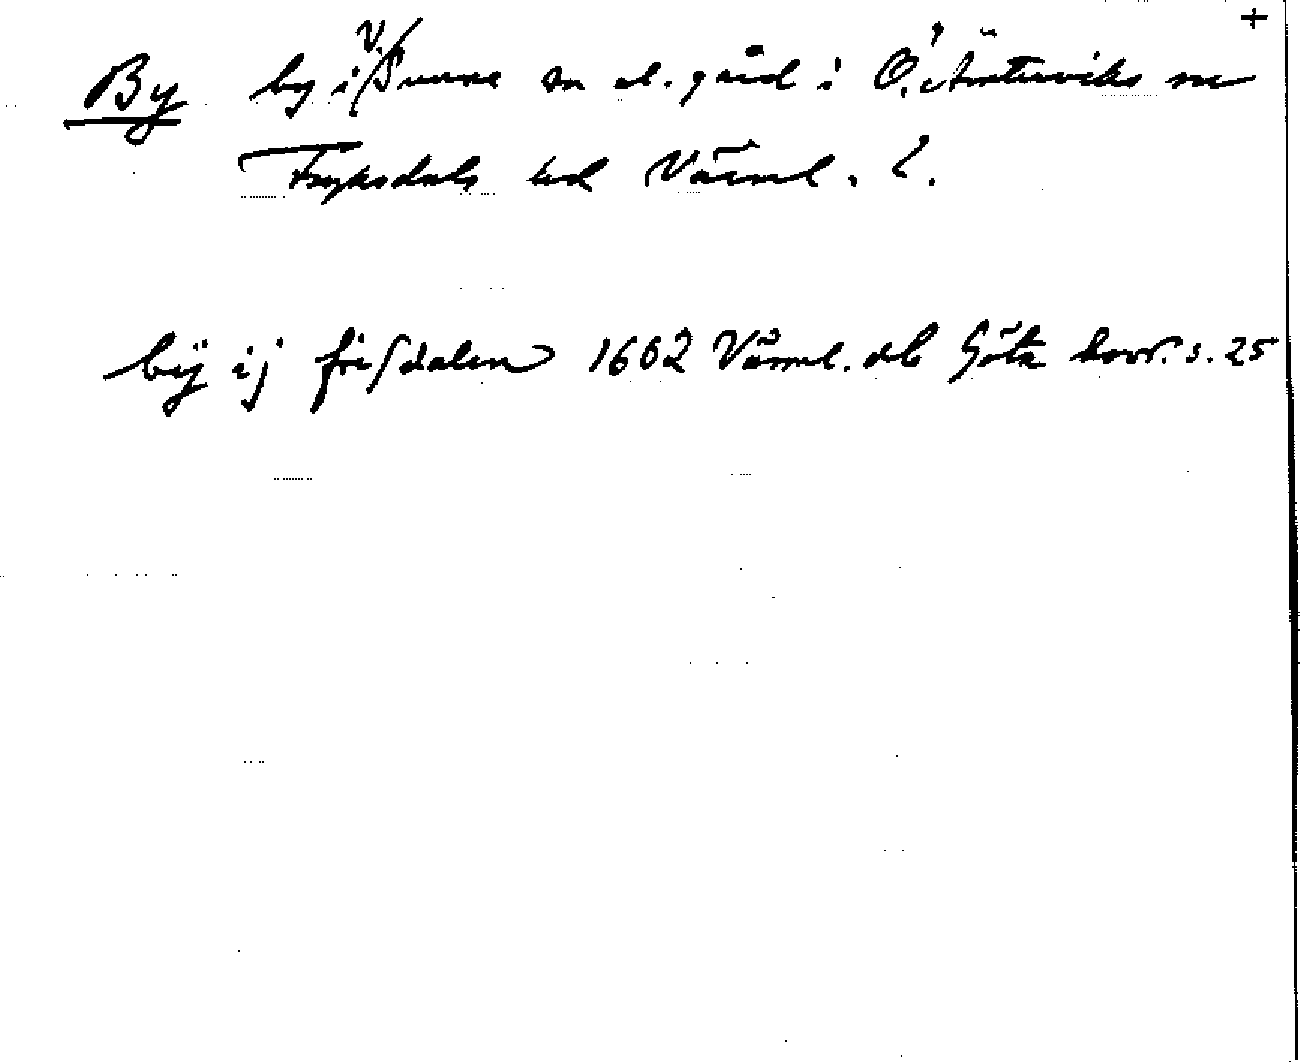 +
By by i V. Sunne sn el. gård i Ö. Ämterviks sn
Fryksdals hd Värml. l.
bÿ ij frisdalen 1602 Värml. db Göta hovr. s. 25